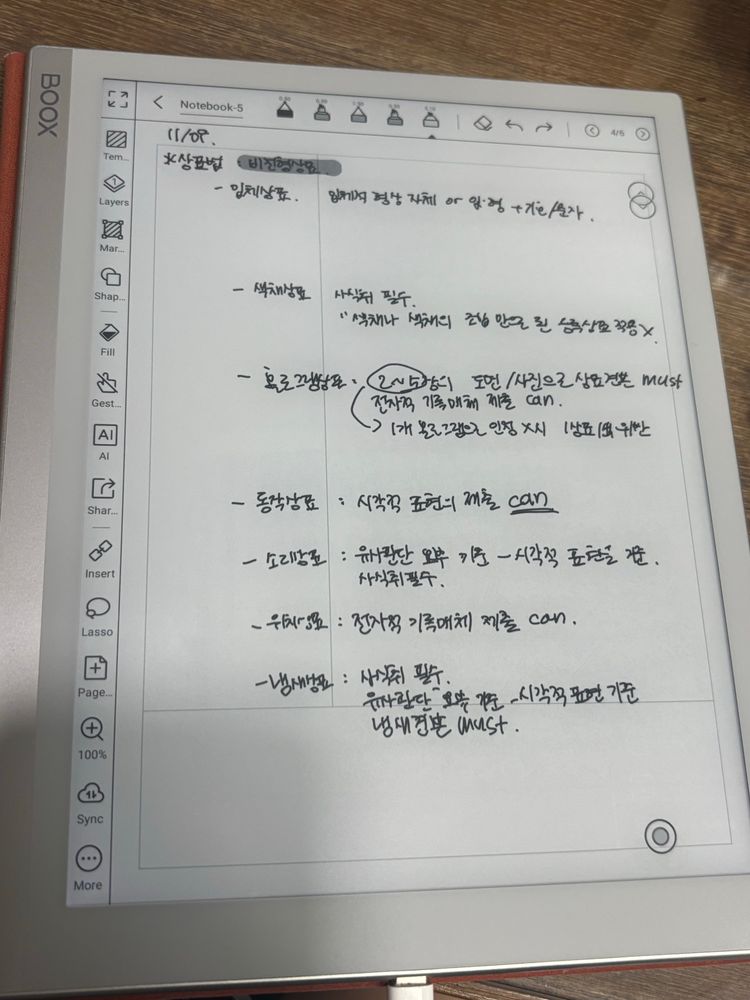 BOOX
Notebook-5
4/6
Tem...
Layers
Mar...
Shap...
Fill
Gest...
AI
AI
Shar...
Insert
Lasso
Page...
100%
Sync
More
11/09.
*상표법 : 비전형상표.
- 입체상표. 입체적 형상 자체 or 입·형 + 기호/문자.
- 색채상표 사식취 필수.
"색채나 색채의 조합 만으로 된 등록상표 적용 X.
- 홀로그램상표 : 2~5장의 도면/사진으로 상표견본 must
전자적 기록매체 제출 can.
→ 1개 홀로그램으로 인정 X시 1상표1출 위반
- 동작상표 : 시각적 표현의 제출 can
- 소리상표 : 유사판단 요부 기준 - 시각적 표현을 기준.
사식취필수.
- 위치상표 : 전자적 기록매체 제출 can.
- 냄새상표 : 사식취 필수.
유사판단 요부 기준 - 시각적 표현 기준
냄새견본 must.